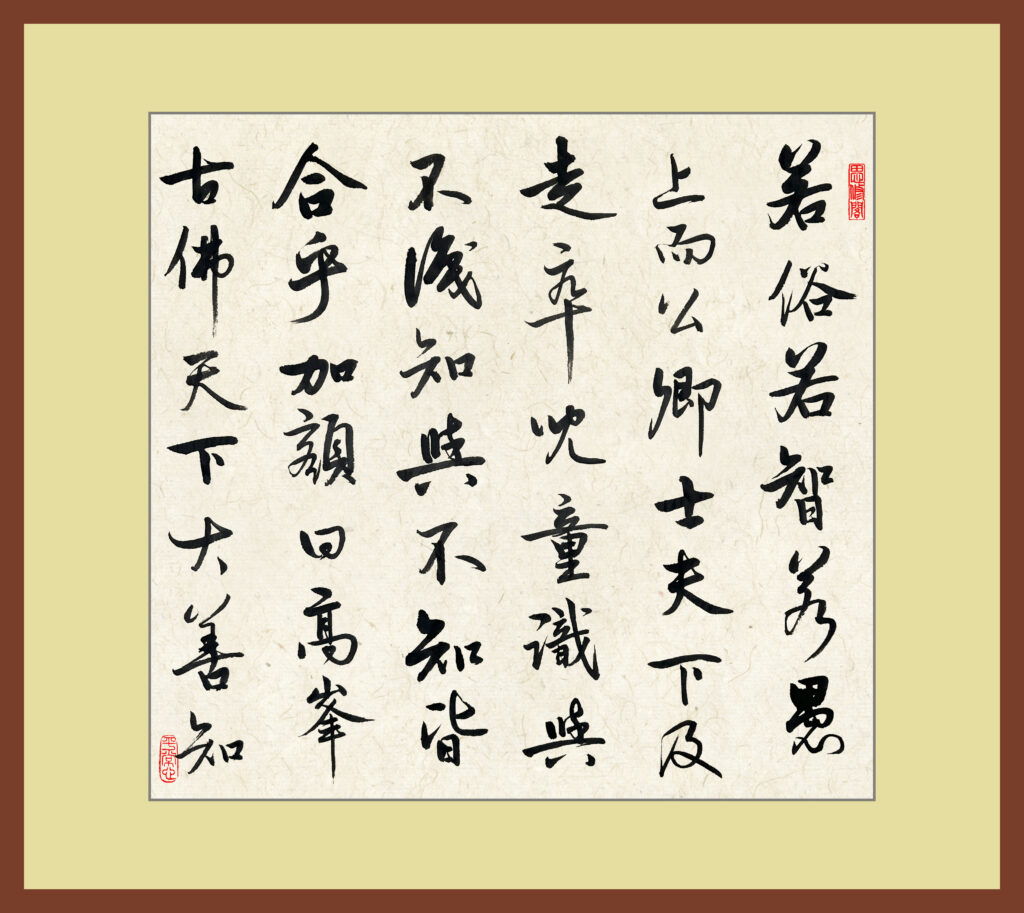 思修閣
若俗若智若愚
上而公卿士夫下及
走卒兒童識與
不識知與不知皆
合乎加額曰高峯
古佛天下大善知
平常心